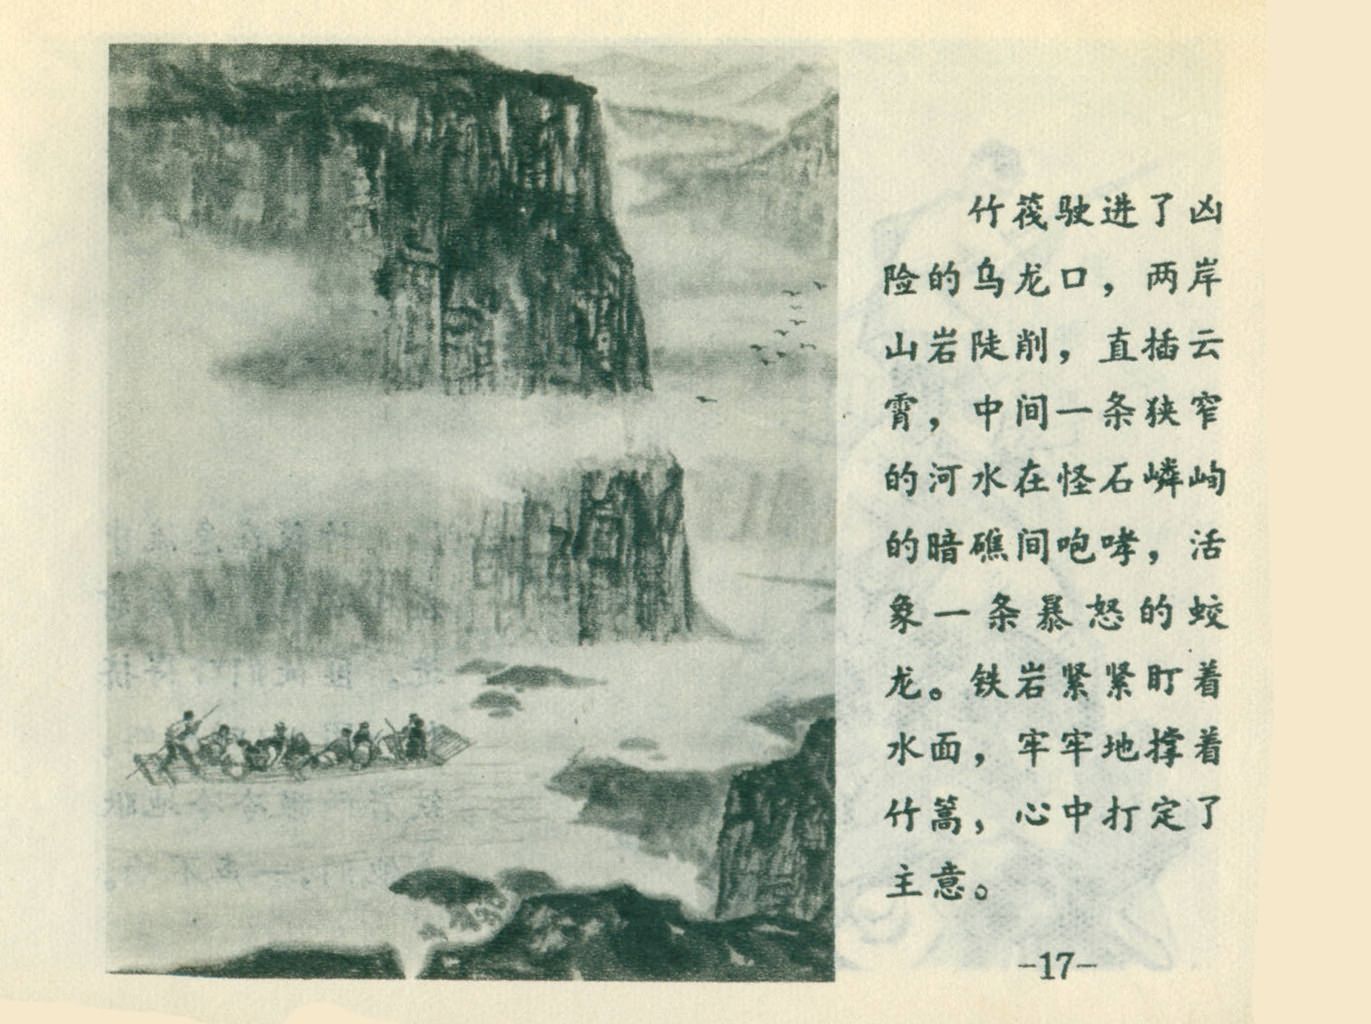 竹筏驶进了凶
险的乌龙口，两岸
山岩陡削，直插云
霄，中间一条狭窄
的河水在怪石嶙峋
的暗礁间咆哮，活
象一条暴怒的蛟
龙。铁岩紧紧盯着
水面，牢牢地撑着
竹篙，心中打定了
主意。
-17-